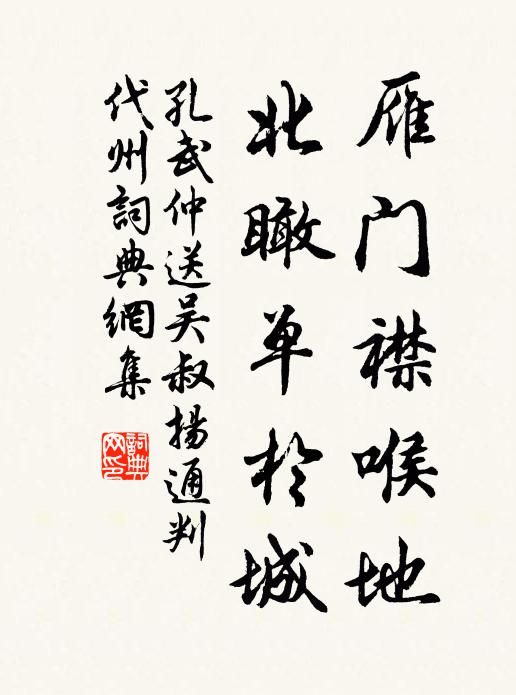 雁门襟喉地
北瞰单於城
孔武仲送吴叔揚通判
代州詞典網集
詞典网印